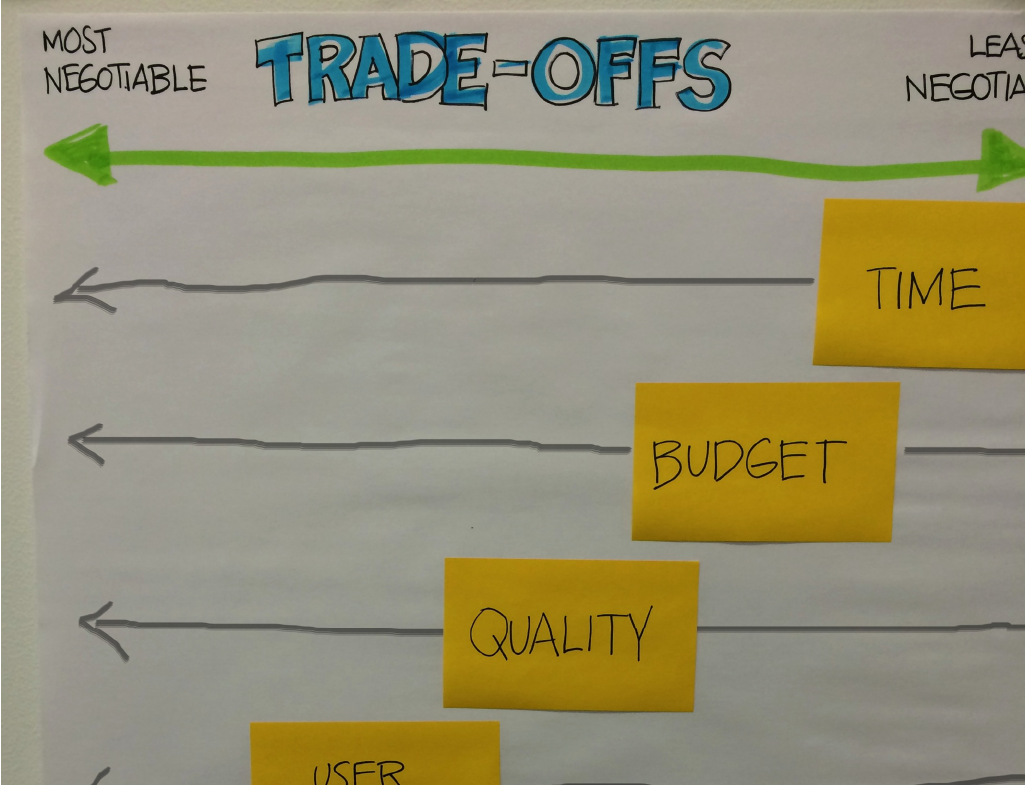 MOST
NEGOTIABLE
TRADE-OFFS
TIME
BUDGET
QUALITY
USER